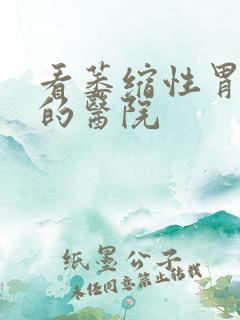 看萎缩性胃
的醫院
纸墨公子
未经同意禁止转载